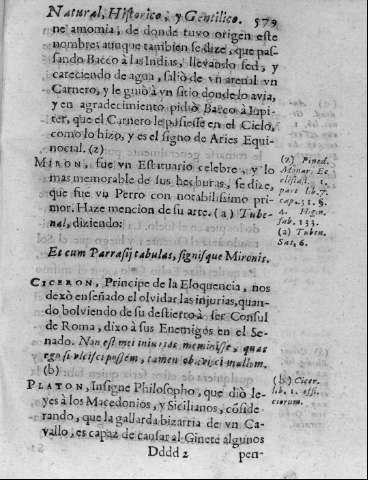 Natural, Historico, y Gentilico. 579
ne amomia; de donde tuvo origen este
nombre, aunque tambien se dize, que pas-
sando Bacco à las Indias, llevando sed, y
careciendo de agua, saliò de vn arenal vn
Carnero, y le guiò à vn sitio donde lo avia,
y en agradecimiento pidiò Bacco à Iupi-
ter, que el Carnero le pusiesse en el Cielo,
como lo hizo, y es el signo de Aries Equi-
noctial. (z)
MIRON, fue vn Estatuario celebre, y lo
mas memorable de sus hechuras, se dize,
que fue vn Perro con notabilissimo pri-
mor. Haze mencion de su arte. (a) Tube-
nal, diziendo:
Et cum Parrasij tabulas, signisque Mironis.
CICERON, Principe de la Eloquencia, nos
dexò enseñado el olvidar las injurias, quan-
do bolviendo de su destierro à ser Consul
de Roma, dixo à sus Enemigos en el Se-
nado. Nan est mei iniurias meminisse, quas
ego si vlcisci possem, tamen oblivisci mallem.
(b)
PLATON, Insigne Philosopho, que diò le-
yes à los Macedonios, y Sicilianos, cõside
rando, que la gallarda bizarria de vn Ca-
vallo, es capaz de causar al Ginete algunos
Dddd 2 pen-
(z) Pined.
Monar. Ec
clesiast. 1.
part lib. 7.
cap. 31. §.
4. Higin.
fab. 133.
(a) Tuben.
Sat. 6.
(b) Cicer.
lib. 1. offi-
ciorum.